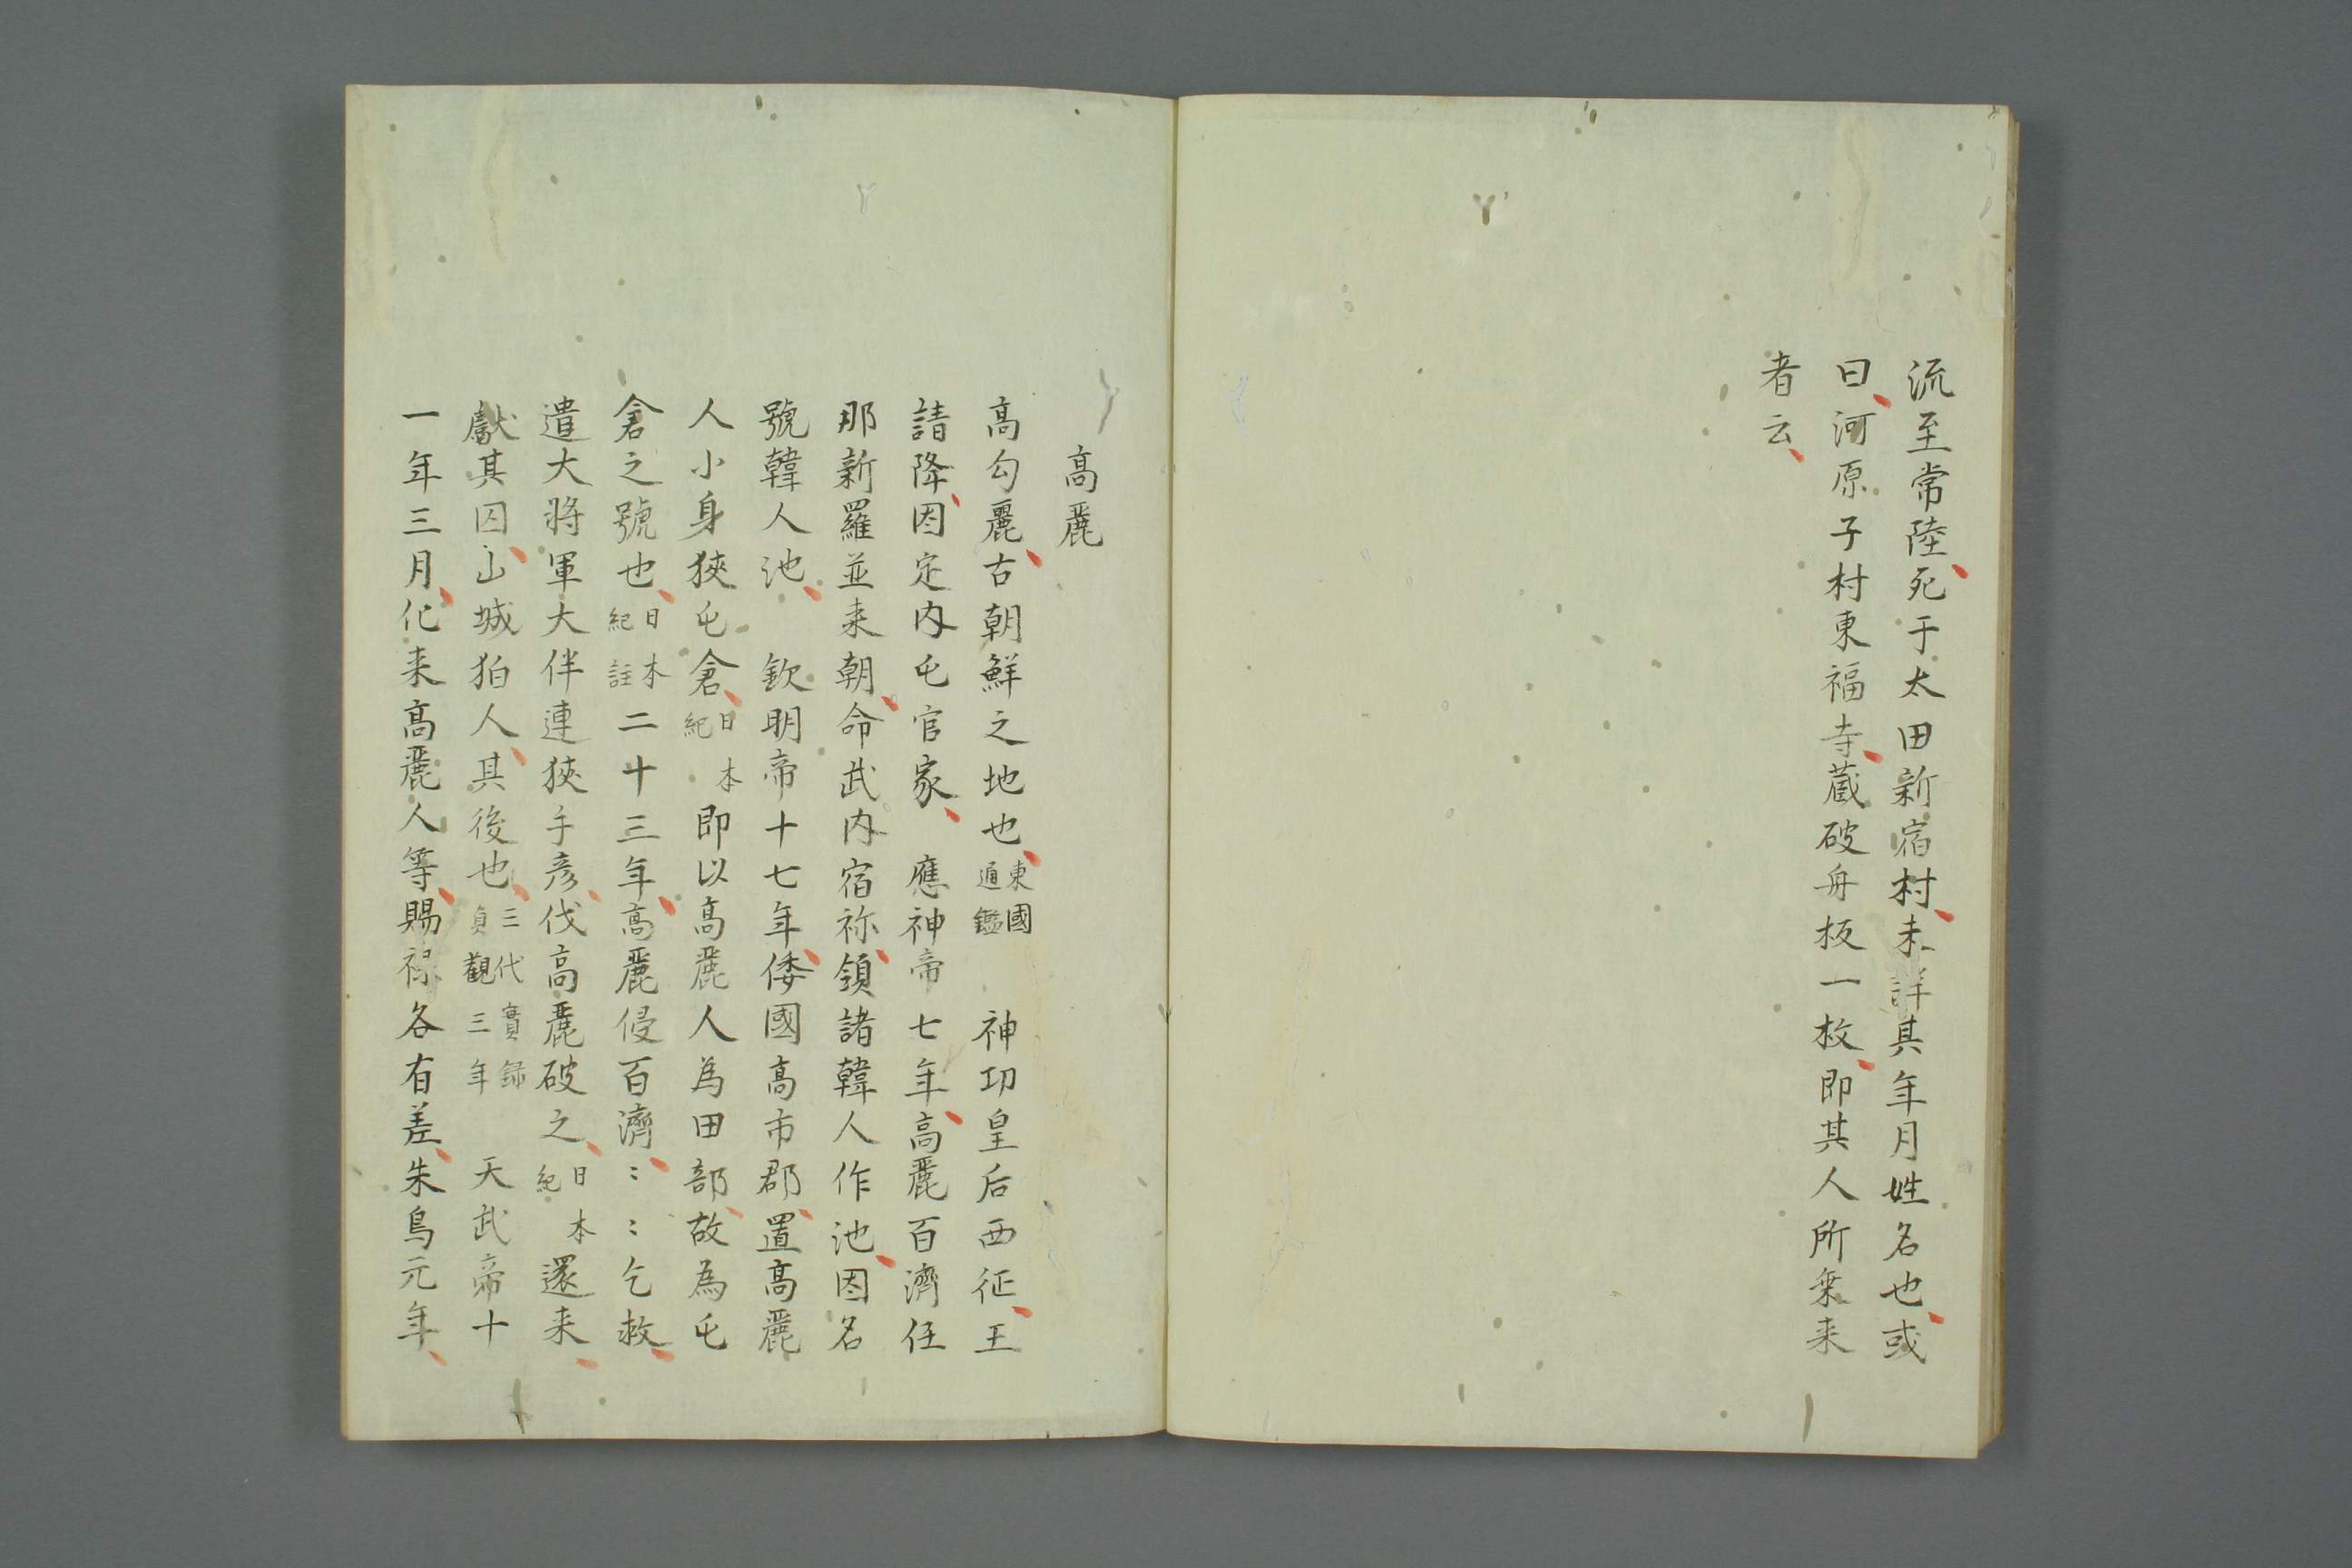 流至常陸死于太田新宿村未詳其年月姓名也或
曰河原子村東福寺蔵破舟板一枚即其人所乗来
者云
高麗
高勾麗古朝鮮之地也東國通鑑 神功皇后西征王
請降因定内屯官家 應神帝七年高麗百濟任
那新羅並来朝命武内宿祢領諸韓人作池因名
號韓人池 欽明帝十七年倭國高市郡置高麗
人小身狹屯倉日本紀即以高麗人為田部故為屯
倉之號也日本紀註二十三年高麗侵百濟〻〻乞救
遣大將軍大伴連狹手彦伐高麗破之日本紀還来
獻其囚山城狛人其後也三代實録貞觀三年 天武帝十
一年三月化来高麗人等賜禄各有差朱鳥元年